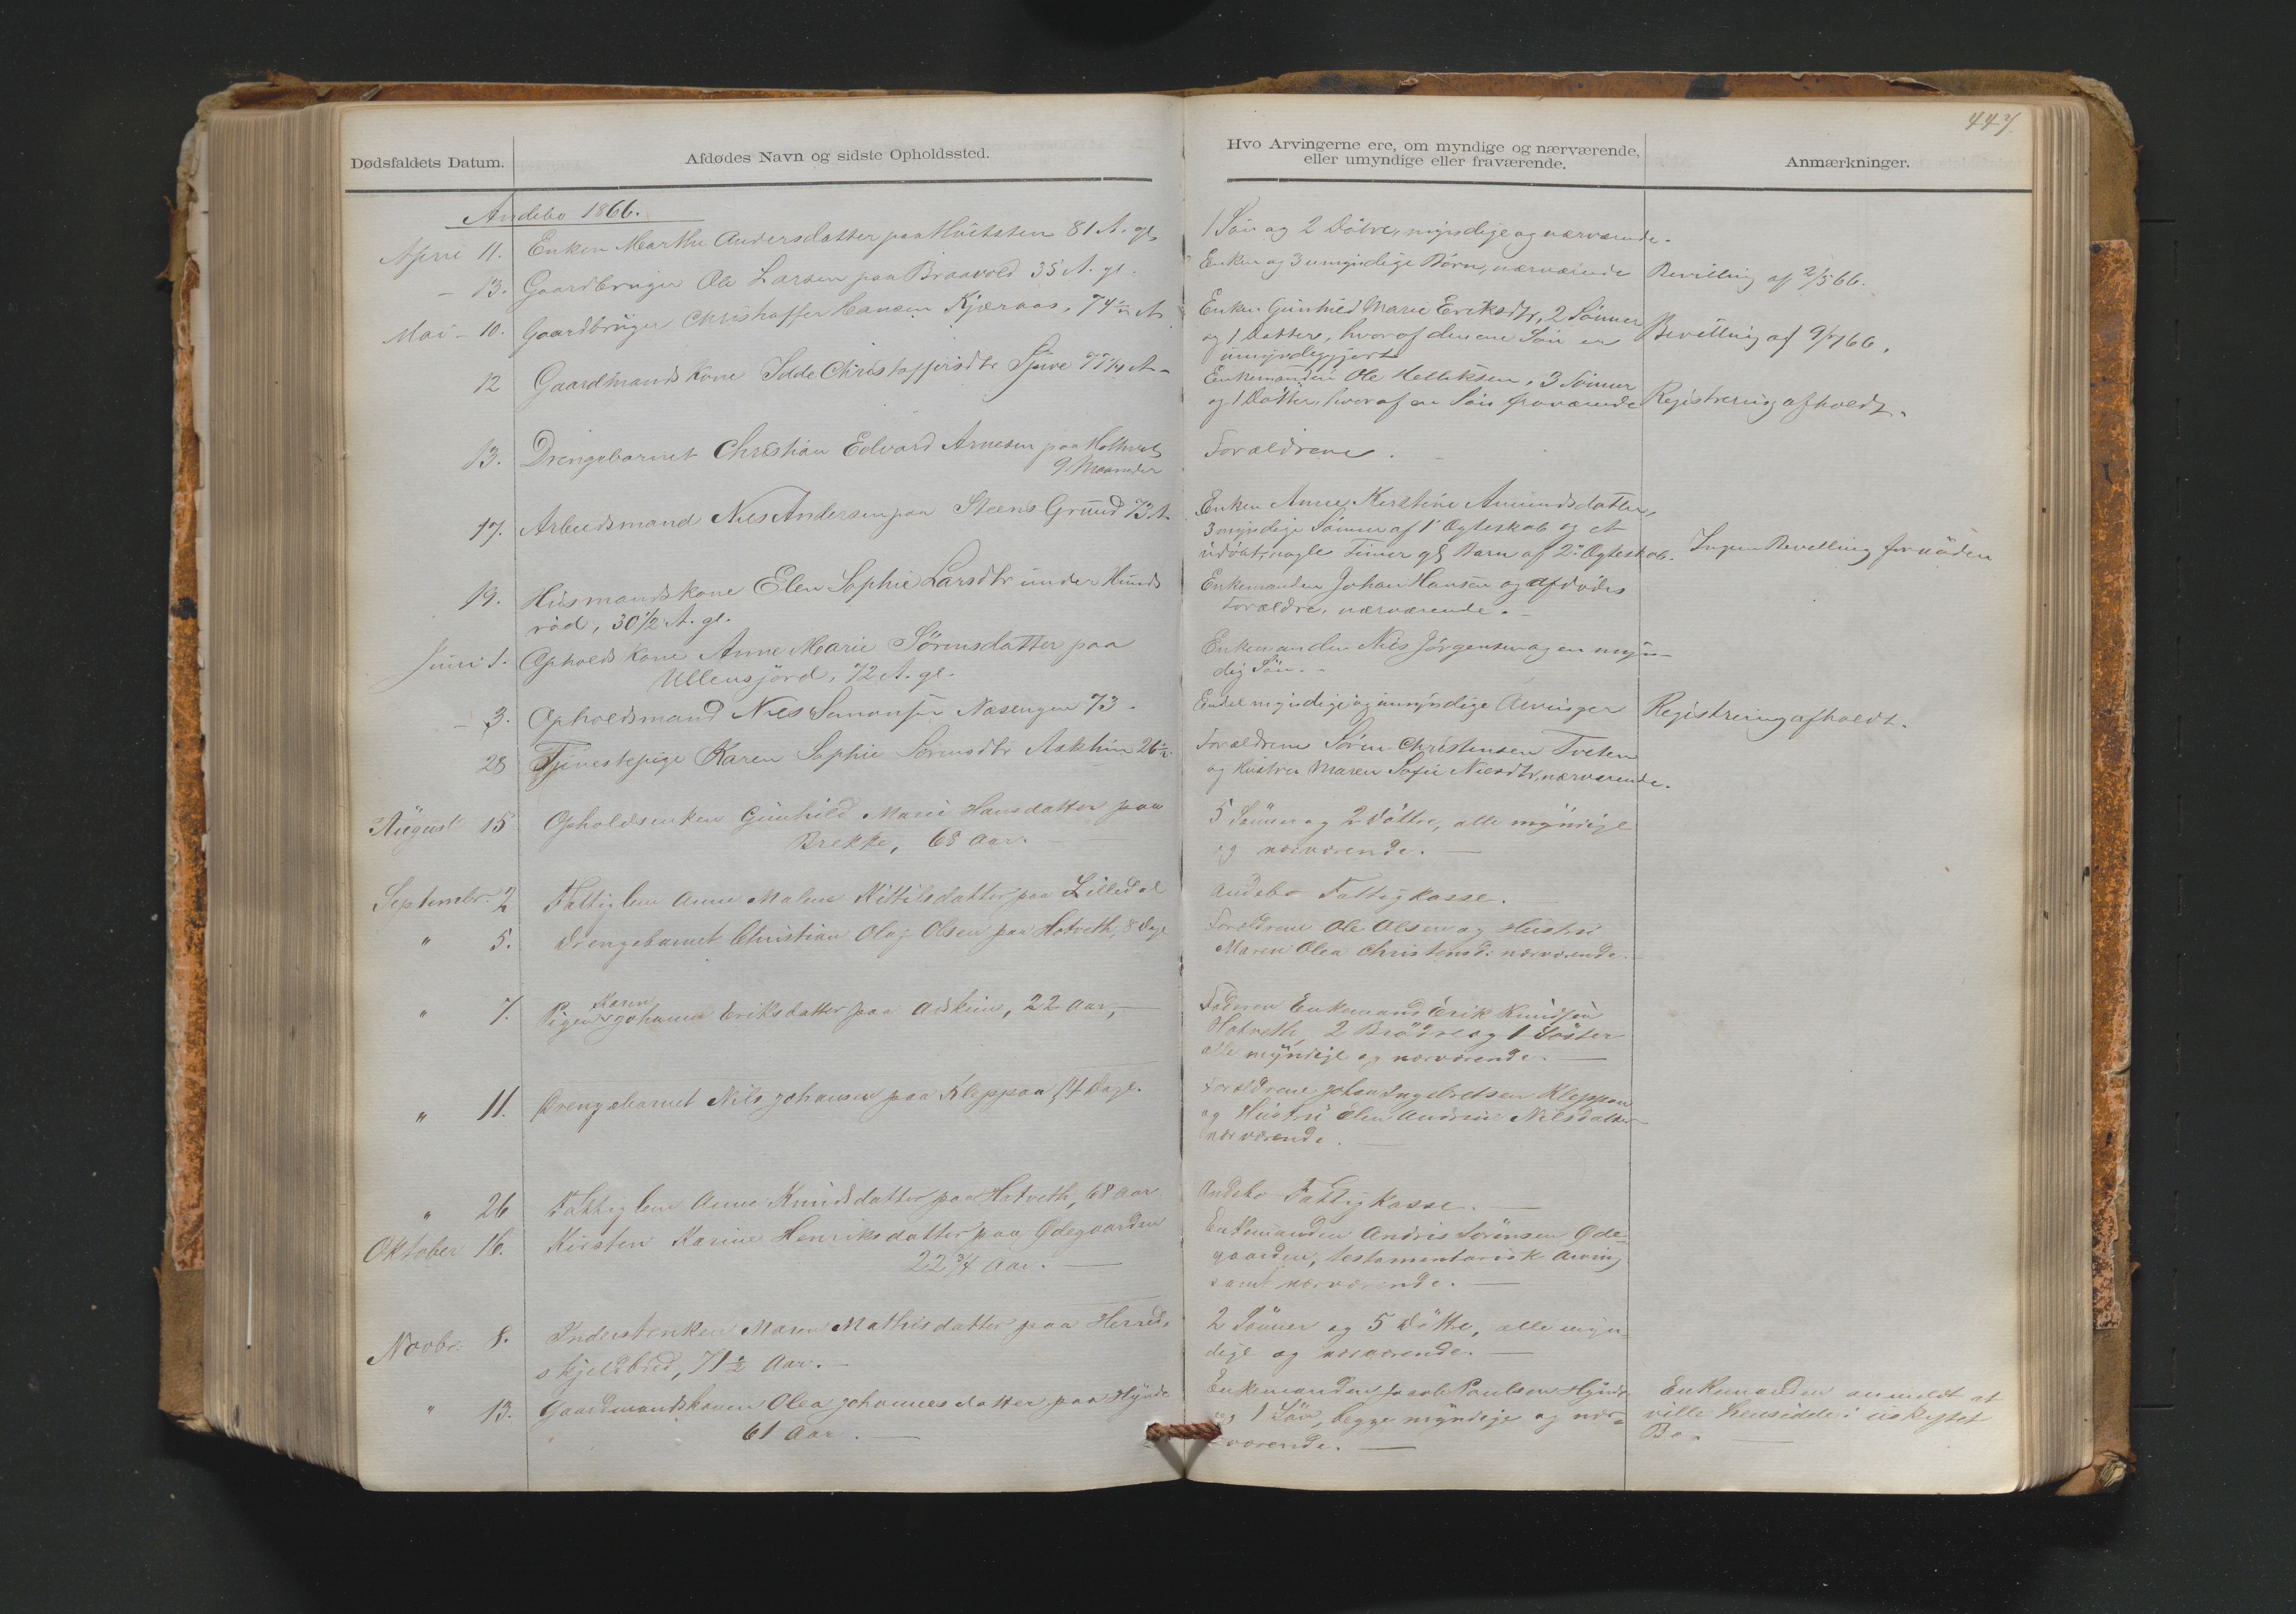 447.
Dødsfaldets Datum. Afdødes Navn og sidste Opholdssted. Hvo Arvingerne ere, om myndige og nærværende, eller umyndige eller fraværende. Anmærkninger.
Andebo 1866.
April 11. Enken Marthe Andersdatter paa Hvitsten 81 A. gl.
1 Sön og 2 Dötre, myndige og nærværende.
- 13. Gaardbruger Ole Larsen paa Braavold 35 A. gl.
Enken og 3 umyndige Börn, nærværende
Bevilling af 2/5 66.
Mai - 10. Gaardbruger Christoffer Hansen Kjæraas, 74 1/2 A
Enken Gunhild Marie Eriksdtr, 2 Sönner
og 1 Datter, hvoraf den ene Sön er
umyndiggjort
Bevilling af 9/7 66.
12 Gaardmandskone Idde Christoffersdtr Sjue 77 A -
Enkemanden Ole Helliksen, 3 Sönner
og 1 Datter, hvoraf en Sön fraværende
Registrering afholdt.
13. Drengebarnet Christian Edvard Arnesen paa
9 Maaneder
Forældrene.
17. Arbeidsmand Nils Andersen paa Steens Grund 73 A.
Enken Anne Kirstine Amundsdatter,
3 myndige Sönner af 1' Ægteskab og et
udöbt, nogle Timer gl. Barn af 2' Ægteskab.
Ingen Bevilling fornöden
19. Husmandskone Elen Sophie Larsdtr under Hunds
röd, 30 1/2 A. gl.
Enkemanden Johan Hansen og afdödes
Forældre, nærværende.
Juni 1. Opholdskone Anne Marie Sörensdatter paa
Ullensjord, 72 A. gl.
Enkemanden Nils Jörgensen og en myn-
dig Sön.
- 3. Opholdsmand Nils Simonsen Næsengen 73.
Endel myndige og umyndige Arvinger
Registrering afholdt.
28 Tjenestepige Karen Sophie Sörensdtr Askhim 26 1/2
Forældrene Sören Christensen Tveten
og Hustru Maren Sofie Nilsdtr, nærværende.
August 15 Opholdsenken Gunhild Marie Hansdatter paa
Brekke, 68 Aar.
5 Sönner og 2 Döttre, alle myndige
og nærværende.
Septembr. 2 Fattiglem Anne Malene Kittilsdatter paa Lilledal
Andebo Fattigkasse.
" 5. Drengebarnet Christian Olaf Olsen paa Hotveth, 8 Dage
Forældrene Ole Olsen og Hustru
Maren Olea Christensd. nærværende.
" 7. Pigen Karen Johanne Eriksdatter paa Askim, 22 Aar,
Faderen Enkemand Erik Knudsen
Hotveth, 2 Brödre og 1 Söster
alle myndige og nærværende.
" 11. Drengebarnet Nils Johansen paa Kleppan, 14 Dage.
Forældrene Johan Ingebretsen Kleppan
og Hustru Elen Andrine Nilsdatter
nærværende.
" 26 Fattiglem Anne Knudsdatter paa Hotveth, 68 Aar
Andebo Fattigkasse.
Oktober 16. Kirsten Karine Henriksdatter paa Ödegaarden
22 3/4 Aar.
Enkemanden Andris Sörensen Öde-
gaarden, testamentarisk Arving
samt nærværende.
Novbr. 8. Inderstenken Maren Mathisdatter paa Herreds
skjeldbred, 71 1/2 Aar.
2 Sönner og 5 Döttre, alle myn-
dige og nærværende.
" 13. Gaardmandskonen Olea Johannesdatter paa Hynde
61 Aar.
Enkemanden Jacob Poulsen Hynde
og 1 Sön, begge myndige og nær-
værende.
Enkemanden anmeldt at
ville hensidde i uskiftet
Bo.